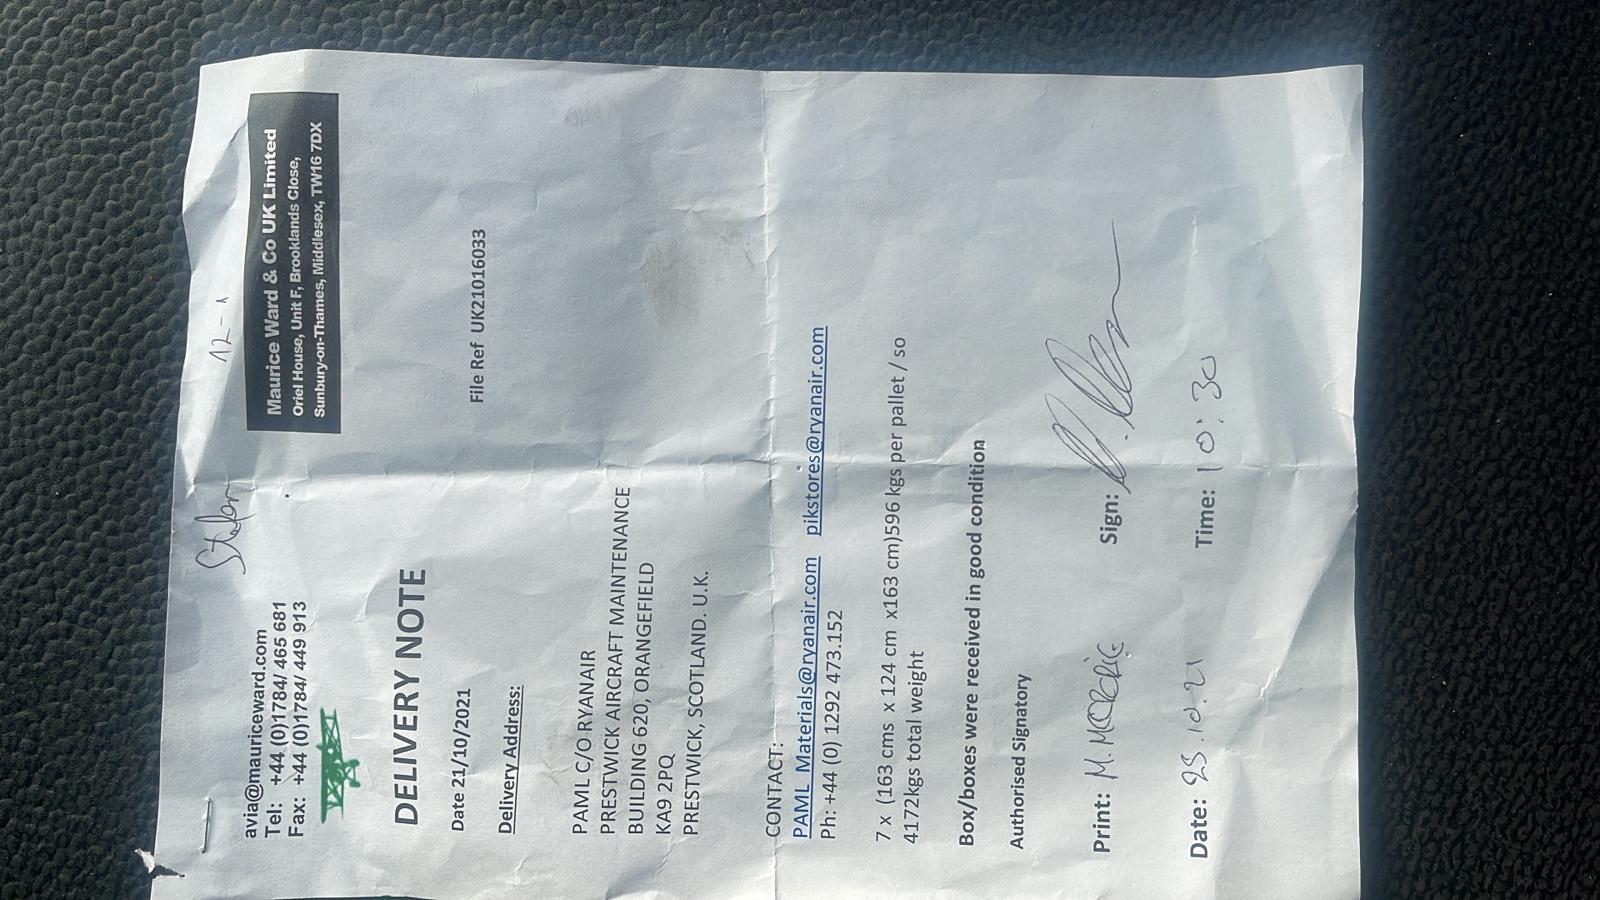 12-1
avia@mauriceward.com
Tel: +44 (0)1784/ 465 681
Fax: +44 (0)1784/ 449 913
Maurice Ward & Co UK Limited
Oriel House, Unit F, Brooklands Close,
Sunbury-on-Thames, Middlesex, TW16 7DX
DELIVERY NOTE
Date 21/10/2021
File Ref UK21016033
Delivery Address:
PAML C/O RYANAIR
PRESTWICK AIRCRAFT MAINTENANCE
BUILDING 620, ORANGEFIELD
KA9 2PQ
PRESTWICK, SCOTLAND. U.K.
CONTACT:
PAML_Materials@ryanair.com pikstores@ryanair.com
Ph: +44 (0) 1292 473.152
7 x (163 cms x 124 cm x163 cm)596 kgs per pallet / so
4172kgs total weight
Box/boxes were received in good condition
Authorised Signatory
Print: M. Sign:
Date: 25.10.21 Time: 10:30